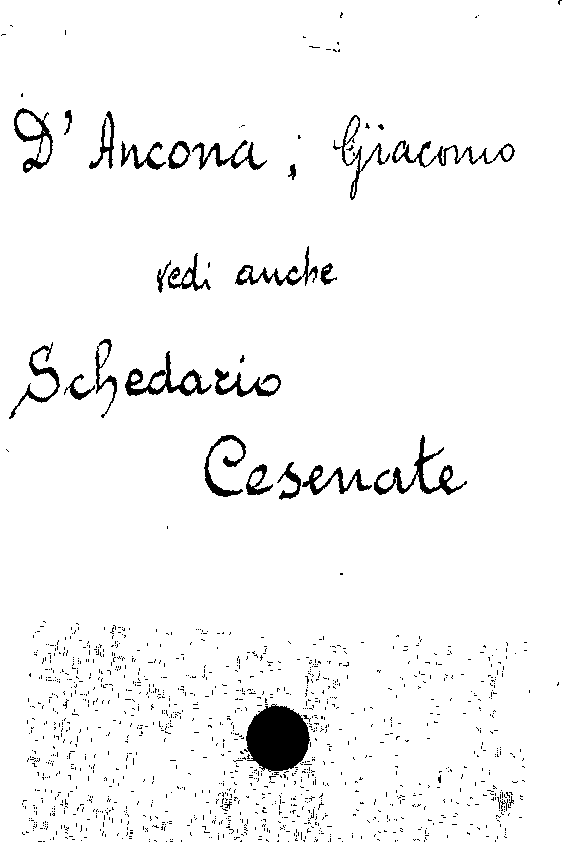 D'Ancona, Giacomo
vedi anche
Schedario
Cesenate